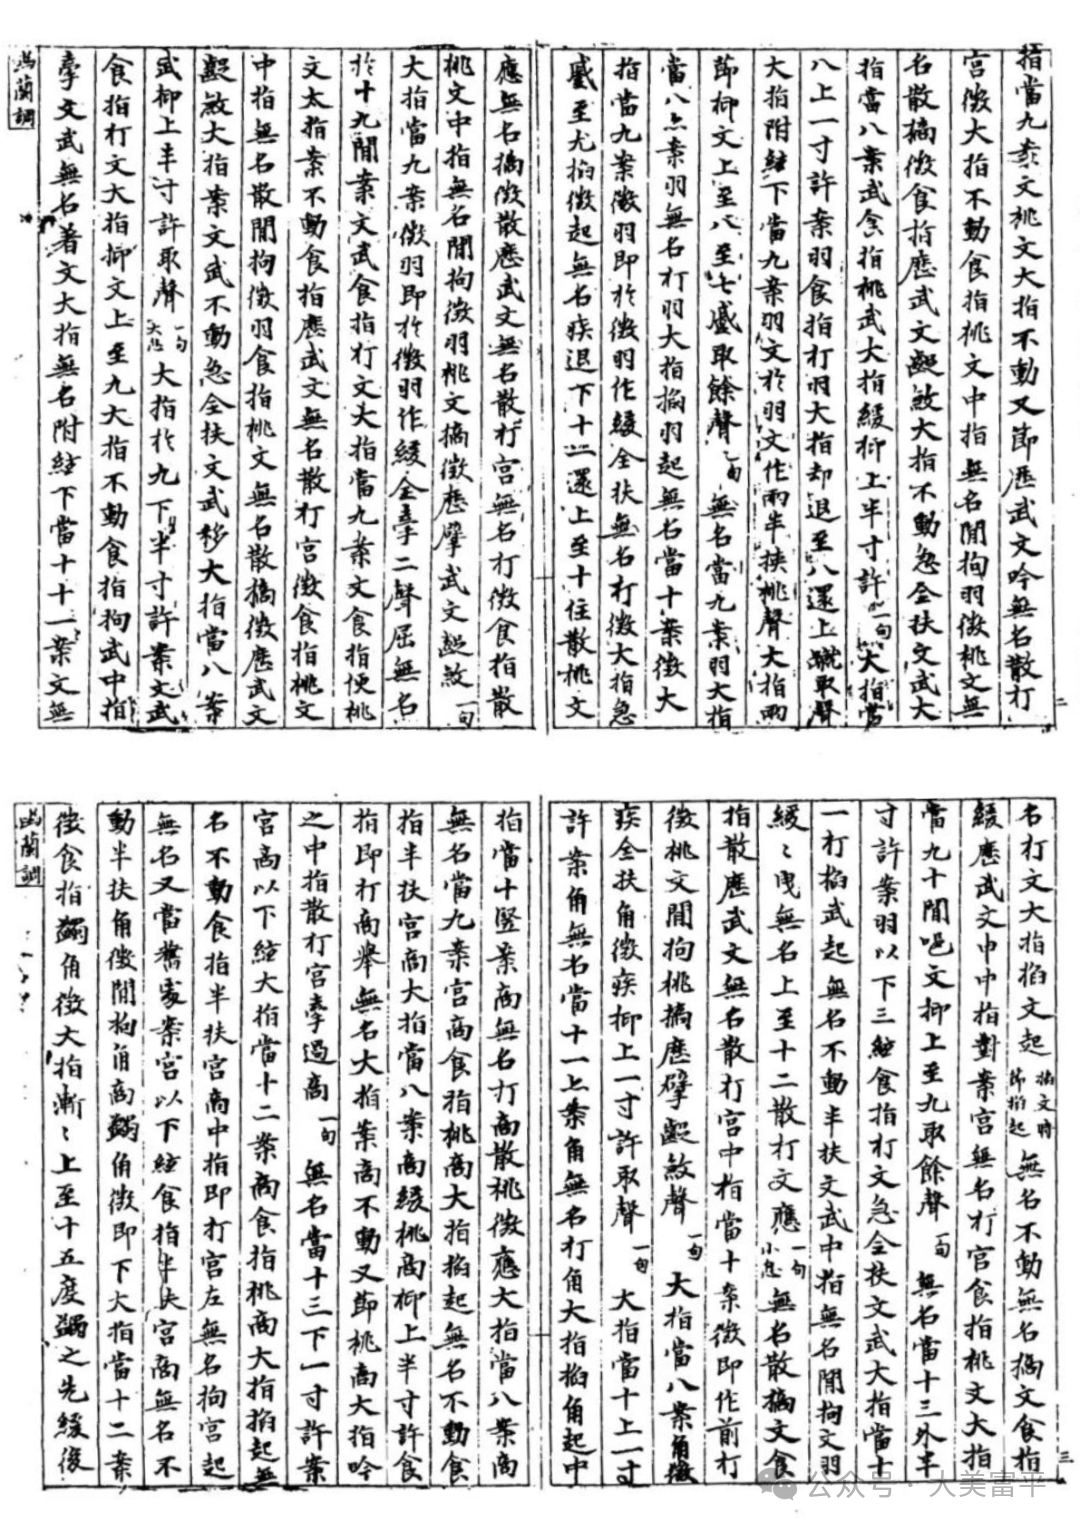 指當九案文桃文大指不動又節歷武文吟無名散打
宮徵大指不動食指桃文中指無名閒拘羽徵桃文無
名散擿徵食指應武文齪敠大指不動急全扶文武大
指當八案武食指桃武大指緩抑上半寸許一句大指當
八上一寸許案羽食指打羽大指却退至八還上取聲
大指附絃下當九案羽文於羽文作兩半挾桃聲大指兩
節抑文上至八至七盛取餘聲一句無名當九案羽大指
當八上案羽無名打羽大指搯羽起無名當十案徵大
指當九案徵羽即於徵羽作緩全扶無名打徵大指急
蹙至九掐徵起無名疾退下十二還上至十住散桃文
應無名擿徵散應武文無名散打宮無名打徵食指散
桃文中指無名閒拘徵羽桃文擿徵應擘武文齪敠一句
大指當九案徵羽即於徵羽作緩全摮二聲屈無名
於十九閒案文武食指打文大指當九案文食指便桃
文大指案不動食指應武文無名散打宮徵食指桃文
中指無名散閒拘徵羽食指桃文無名散擿徵應武文
齪敠大指案文武不動急全扶文武移大指當八案
武抑上半寸許取聲一句大指於九下半寸許案文武
食指打文大指抑文上至九大指不動食指拘武中指
摮文武無名著文大指無名附絃下當十十一案文無
幽蘭調
二
名打文大指搯文起搯文時節搯起無名不動無名擿文食指
緩應武文中中指對案宮無名打宮食指桃文大指
當九十閒吧文抑上至九取餘聲一句無名當十三外半
寸許案羽以下三絃食指打文急全扶文武大指當十
一打搯武起無名不動半扶文武中指無名閒拘文羽
緩〻曳無名上至十二散打文應一句小息無名散擿文食
指散應武文無名散打宮中指當十案徵即作前打
徵桃文閒拘桃擿應擘齪敠聲一句大指當八案角徵
疾全扶角徵疾抑上一寸許取聲一句大指當十上一寸
許案角無名當十一上案角無名打角大指搯角起中
指當十豎案商無名打商散桃徵應大指當八案商
無名當九案宮商食指桃商大指搯起無名不動食
指半扶宮商大指當八案商緩桃商抑上半寸許食
指即打商舉無名大指案商不動又節桃商大指吟
之中指散打宮摮過商一句無名當十三下一寸許案
宮商以下絃大指當十二案商食指桃商大指搯起無
名不動食指半扶宮商中指即打宮左無名拘宮起
無名又當舊處案宮以下絃食指半扶宮商無名不
動半扶角徵閒拘角商蠲角徵即下大指當十二案
徵食指蠲角徵大指漸〻上至十五度蠲之先緩後
幽蘭調
三
公众号 · 大美富平